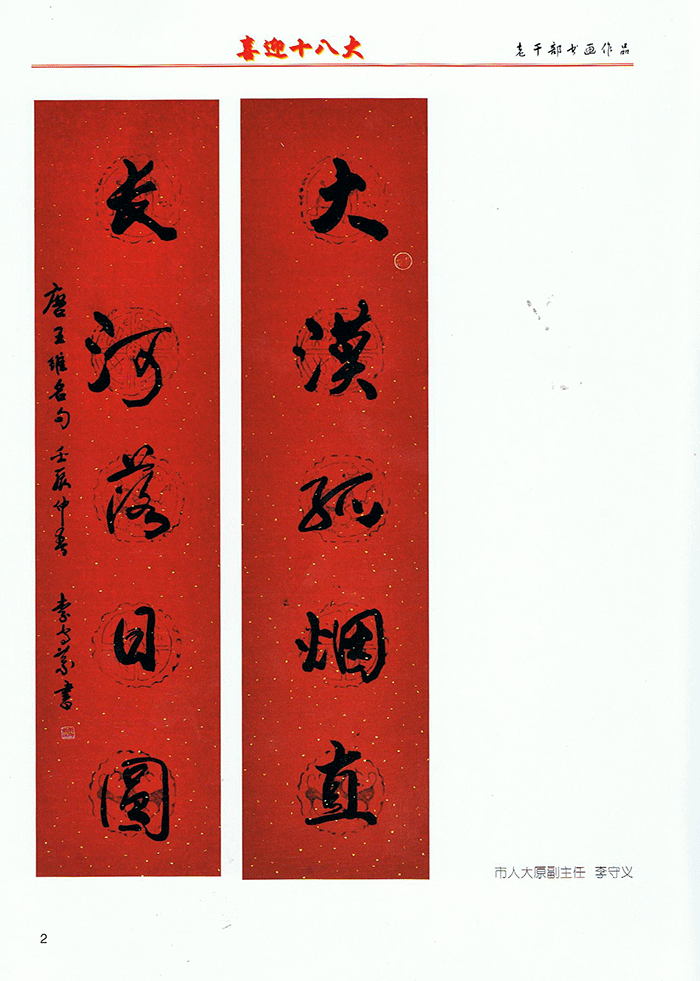 喜迎十八大
老干部书画作品
大漠孤烟直
长河落日圆
唐王维名句 壬辰仲春 李守义书
市人大原副主任 李守义
2